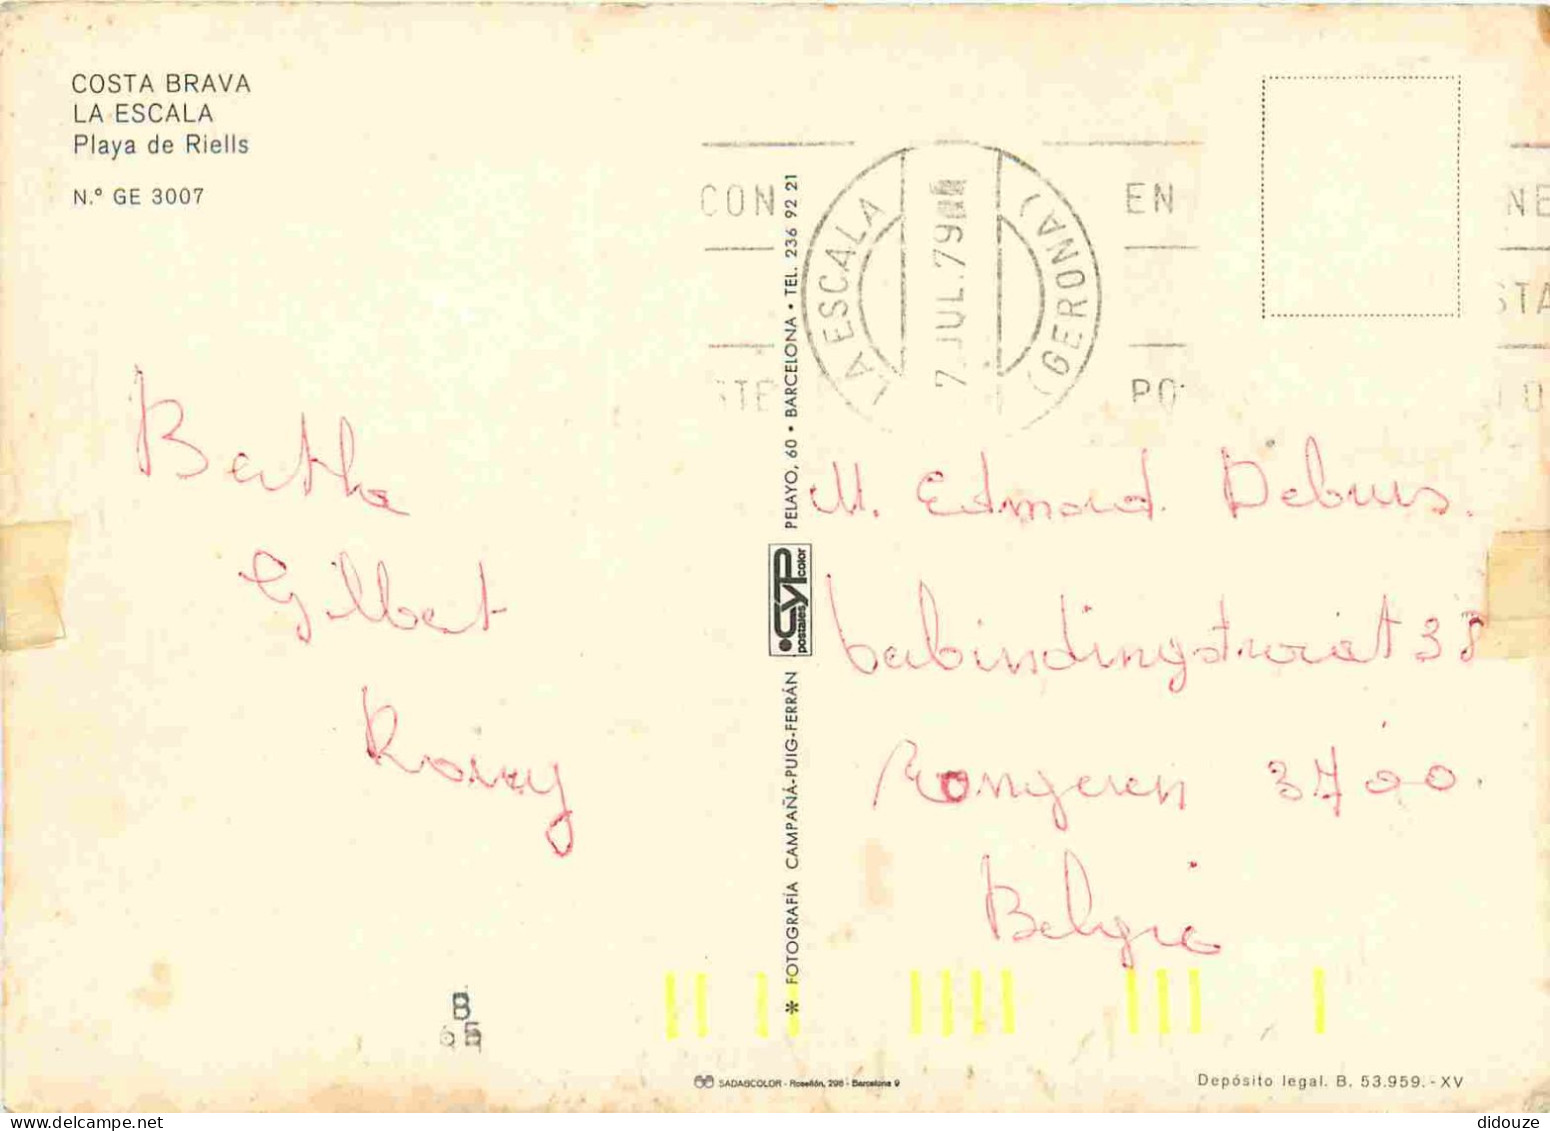 COSTA BRAVA
LA ESCALA
Playa de Riells
N.º GE 3007
CON
EN
NE
STA
PO
LA ESCALA
7 JUL. 79
(GERONA)
Bertha
Gilbert
M. Edmord. Debus.
38
Tongeren 3700.
Belgie
* FOTOGRAFÍA CAMPAÑÁ-PUIG-FERRÁN
CYP color postales
PELAYO, 60 • BARCELONA • TEL. 236 92 21
B
65
SADAGCOLOR - Rosellón, 298 - Barcelona 9
Depósito legal. B. 53.959. - XV
didouze